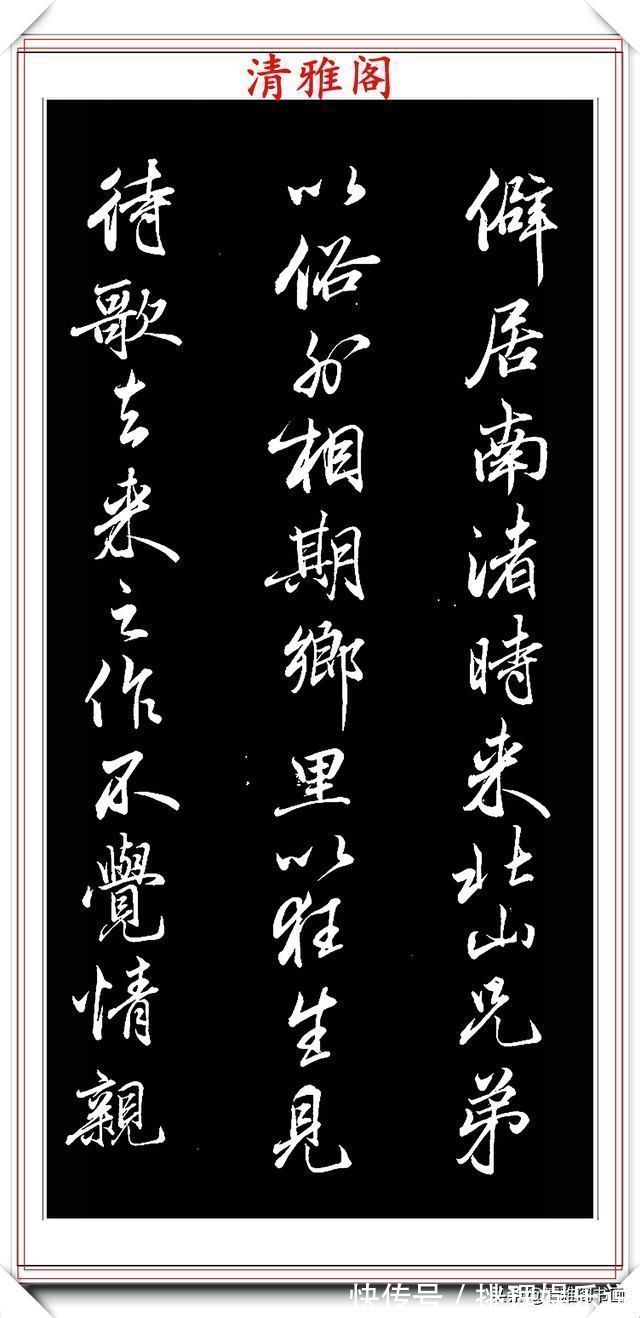 清雅阁
僻居南渚時来北山兄弟
以俗外相期鄉里以狂生見
待歌去来之作不覺情親
快传号／